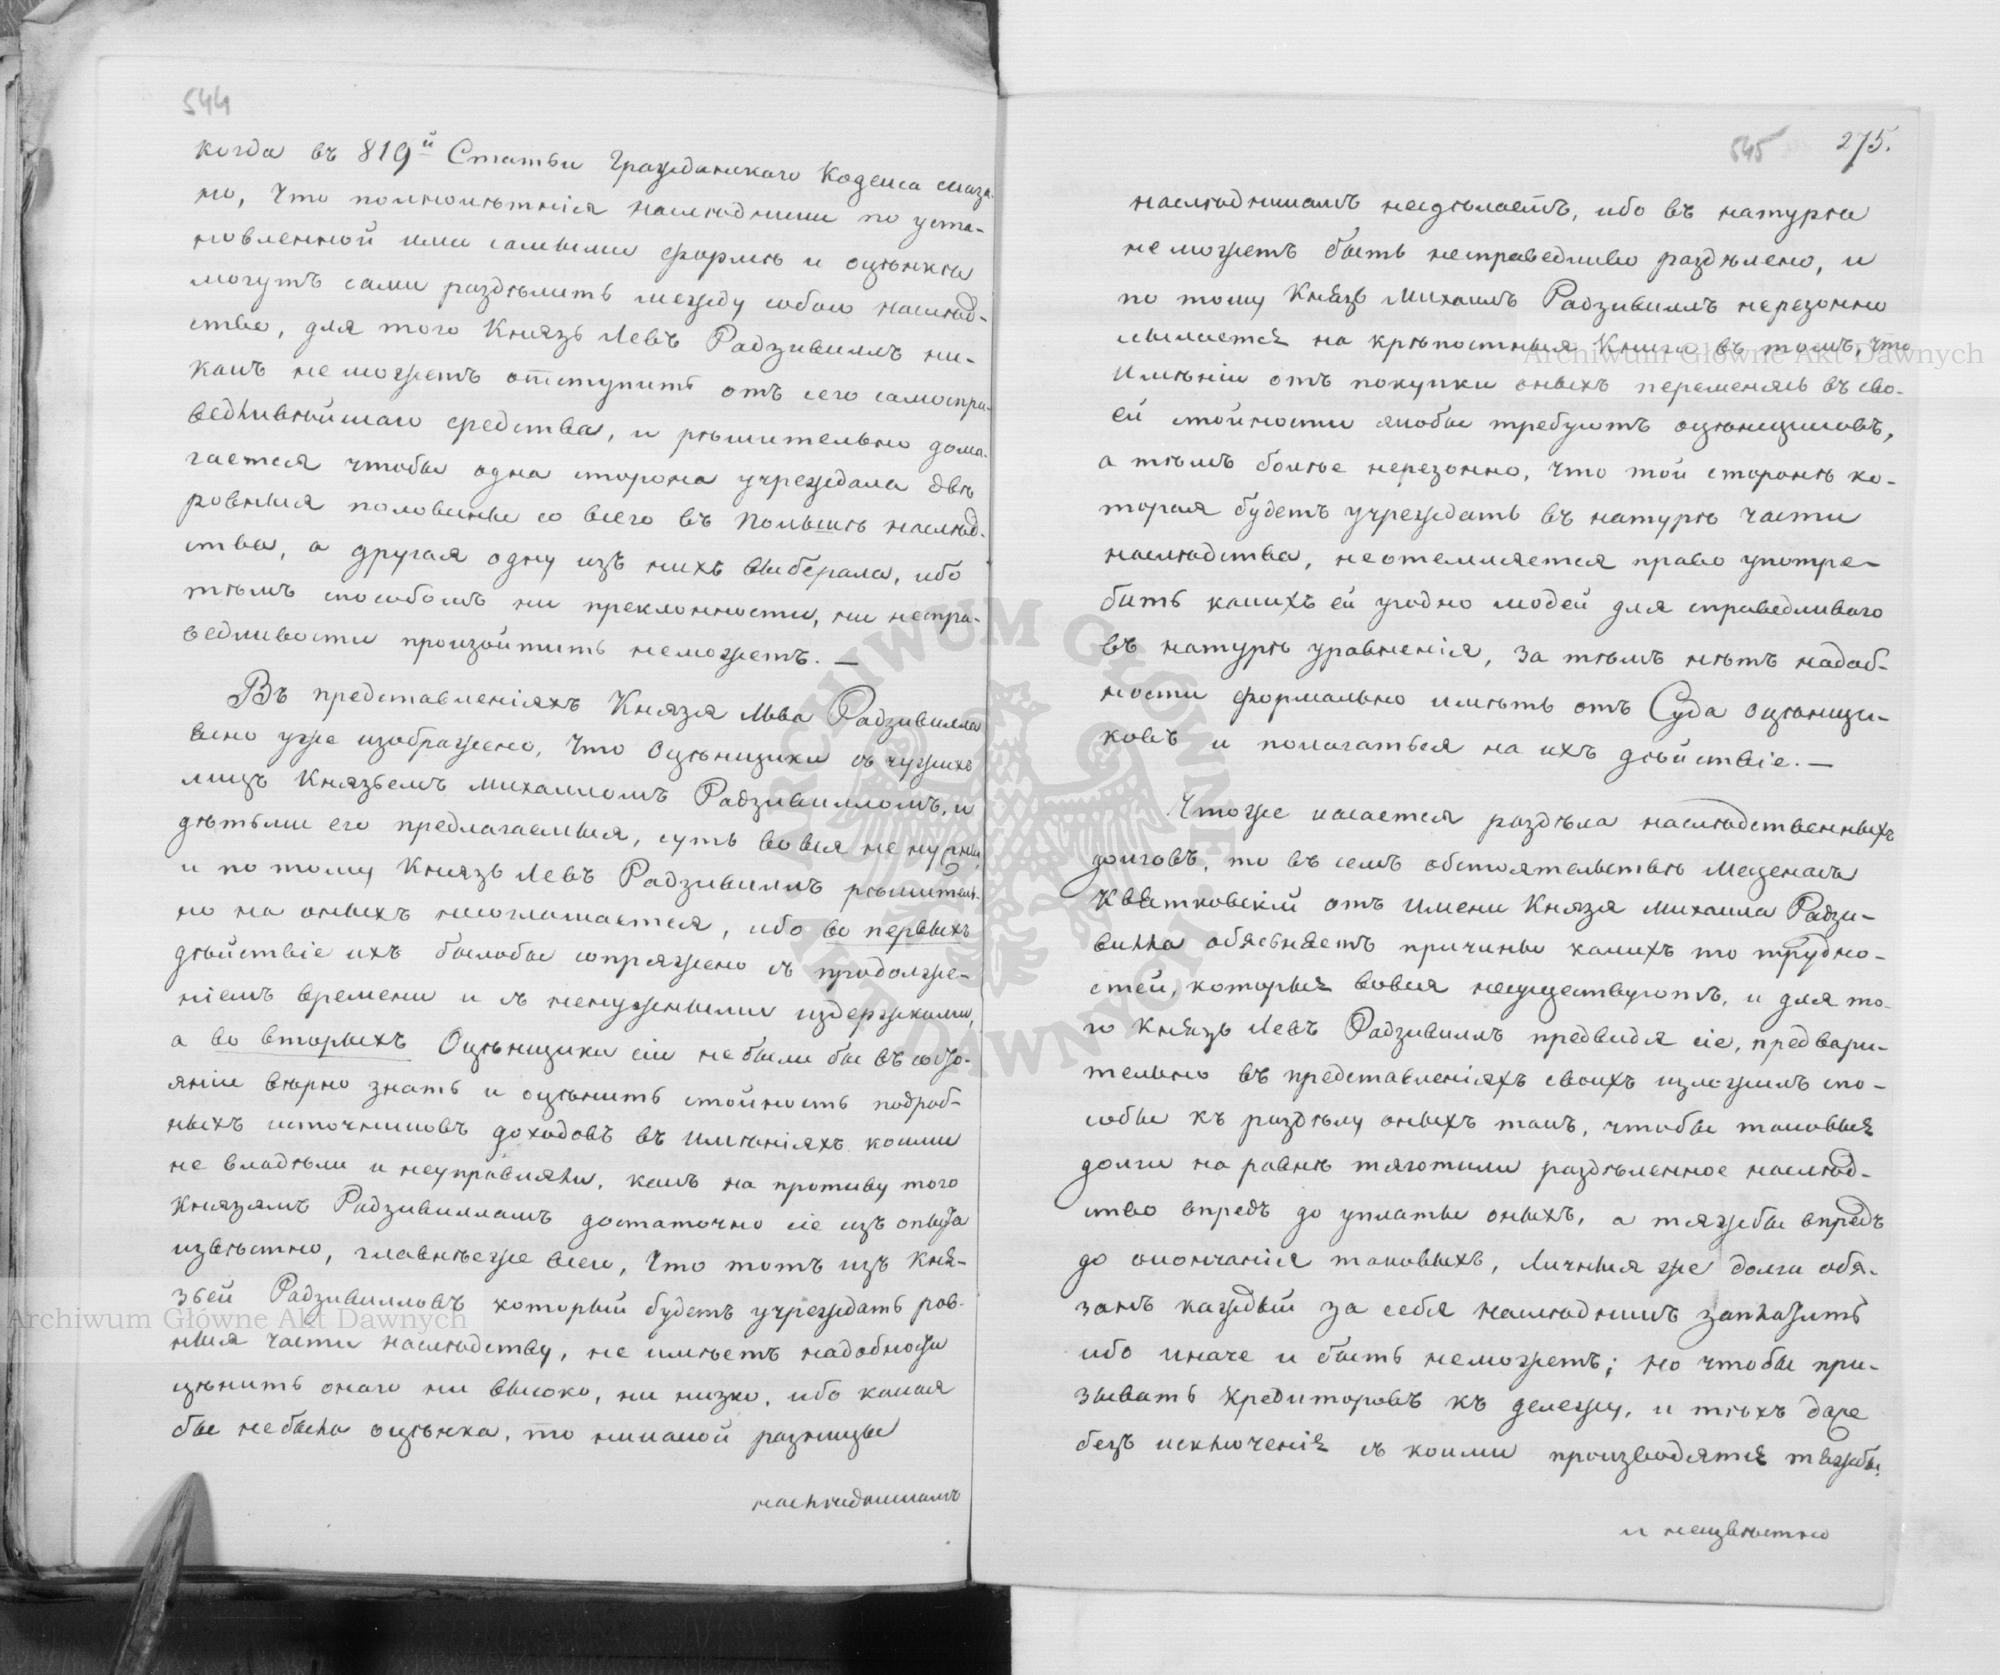 544
когда въ 819й Статьи Гражданскаго Кодекса сказа-
но, что полнолѣтнія наслѣдники по уста-
новленной ими самыми формѣ и оцѣнкѣ
могутъ сами раздѣлить между собою наслѣд-
ство, для того Князь Левъ Радзивиллъ ни-
какъ не можетъ отступить отъ сего самоспра-
ведливѣйшаго средства, и рѣшительно дома-
гается чтобы одна сторона учреждала двѣ
ровныя половины со всего въ Польшѣ наслѣд-
ства, а другая одну изъ нихъ выберала, ибо
тѣмъ способомъ ни преклонности, ни неспра-
ведливости произойтить неможетъ. —
Въ представленіяхъ Князя Льва Радзивилла
ясно уже изображено, что Оцѣнщики съ чужихъ
лицъ Княземъ Михаиломъ Радзивилломъ, и
дѣтьми его предлагаемыя, суть вовся не нужны
и по тому Князь Левъ Радзивиллъ рѣшитель-
но на оныхъ несоглашается, ибо во первыхъ
дѣйствіе ихъ былобы сопряжено съ продолже-
ніемъ времени и съ ненужными издержками,
а во вторыхъ Оцѣнщики сіи небыли бы въ состо-
яніи вѣрно знать и оцѣнить стойность подроб-
ныхъ источниковъ доходовъ въ имѣніяхъ коими
не владѣли и неуправляли, какъ на противу того
Князямъ Радзивилламъ достаточно сіе изъ опыта
извѣстно, главнѣеже всего, что тотъ изъ Кня-
зьей Радзивилловъ который будетъ учреждать ров-
ныя части наслѣдству, не имѣетъ надобности
цѣнить онаго ни высоко, ни низко, ибо какая
бы небыла оцѣнка, то никакой разницы
наслѣдникамъ
545 275.
наслѣдникамъ несдѣлаетъ, ибо въ натурѣ
неможетъ быть несправедливо раздѣлено, и
по тому Князь Михаилъ Радзивиллъ нерезонно
ссылается на крѣпостныя Книги въ томъ, что
Имѣніи отъ покупки оныхъ переменясь въ сво-
ей стойности якобы требуютъ оцѣнщиковъ,
а тѣмъ болѣе нерезонно, что той сторонѣ ко-
торая будетъ учреждать въ натурѣ части
наслѣдства, неотемляется право употре-
бить какихъ ей угодно людей для справедливаго
въ натурѣ уравненія, за тѣмъ нѣтъ надоб-
ности формально имѣть отъ Суда Оцѣнщи-
ковъ и полагаться на ихъ дѣйствіе. —
Чтоже касается раздѣла наслѣдственныхъ
долговъ, то въ семъ обстоятельствѣ Меценасъ
Квятковскій отъ имени Князя Михаила Радзи-
вилла обясьняетъ причины какихъ то трудно-
стей, которыя вовся несуществуютъ, и для то-
го Князь Левъ Радзивиллъ предвидя сіе, предвари-
тельно въ представленіяхъ своихъ изложилъ спо-
собы къ раздѣлу оныхъ такъ, чтобы таковыя
долги на равнѣ тяготили раздѣленное наслѣд-
ство впредъ до уплаты оныхъ, а тяжбы впредъ
до окончанія таковыхъ, Личныя же долги обя-
занъ каждый за себя наслѣдникъ заплатить
ибо иначе и быть неможетъ; но чтобы при-
зывать кредиторовъ къ дележу, и тѣхъ даже
безъ исключенія съ коими производятся тяжбы,
и неизвѣстно